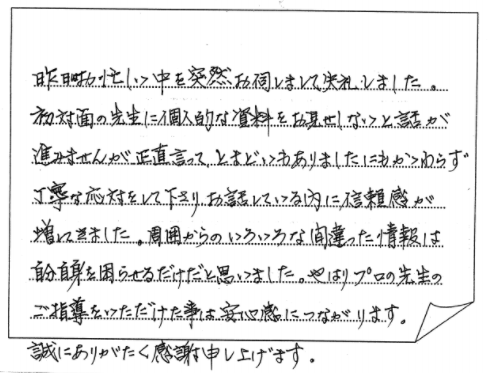 昨日お忙しい中を突然お伺しまして失礼しました。
初対面の先生に個人的な資料をお見せしないと話が
進みませんが正直言って、とまどいもありましたにもかかわらず
丁寧な応対をして下さりお話している内に信頼感が
増してきました。周囲からのいろいろな間違った情報は
自分自身を困らせるだけだと思いました。やはりプロの先生の
ご指導をいただけた事は安心感につながります。
誠にありがたく感謝申し上げます。